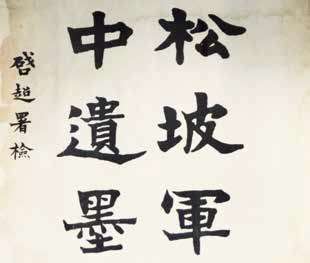 松坡軍
中遺墨
啓超署檢